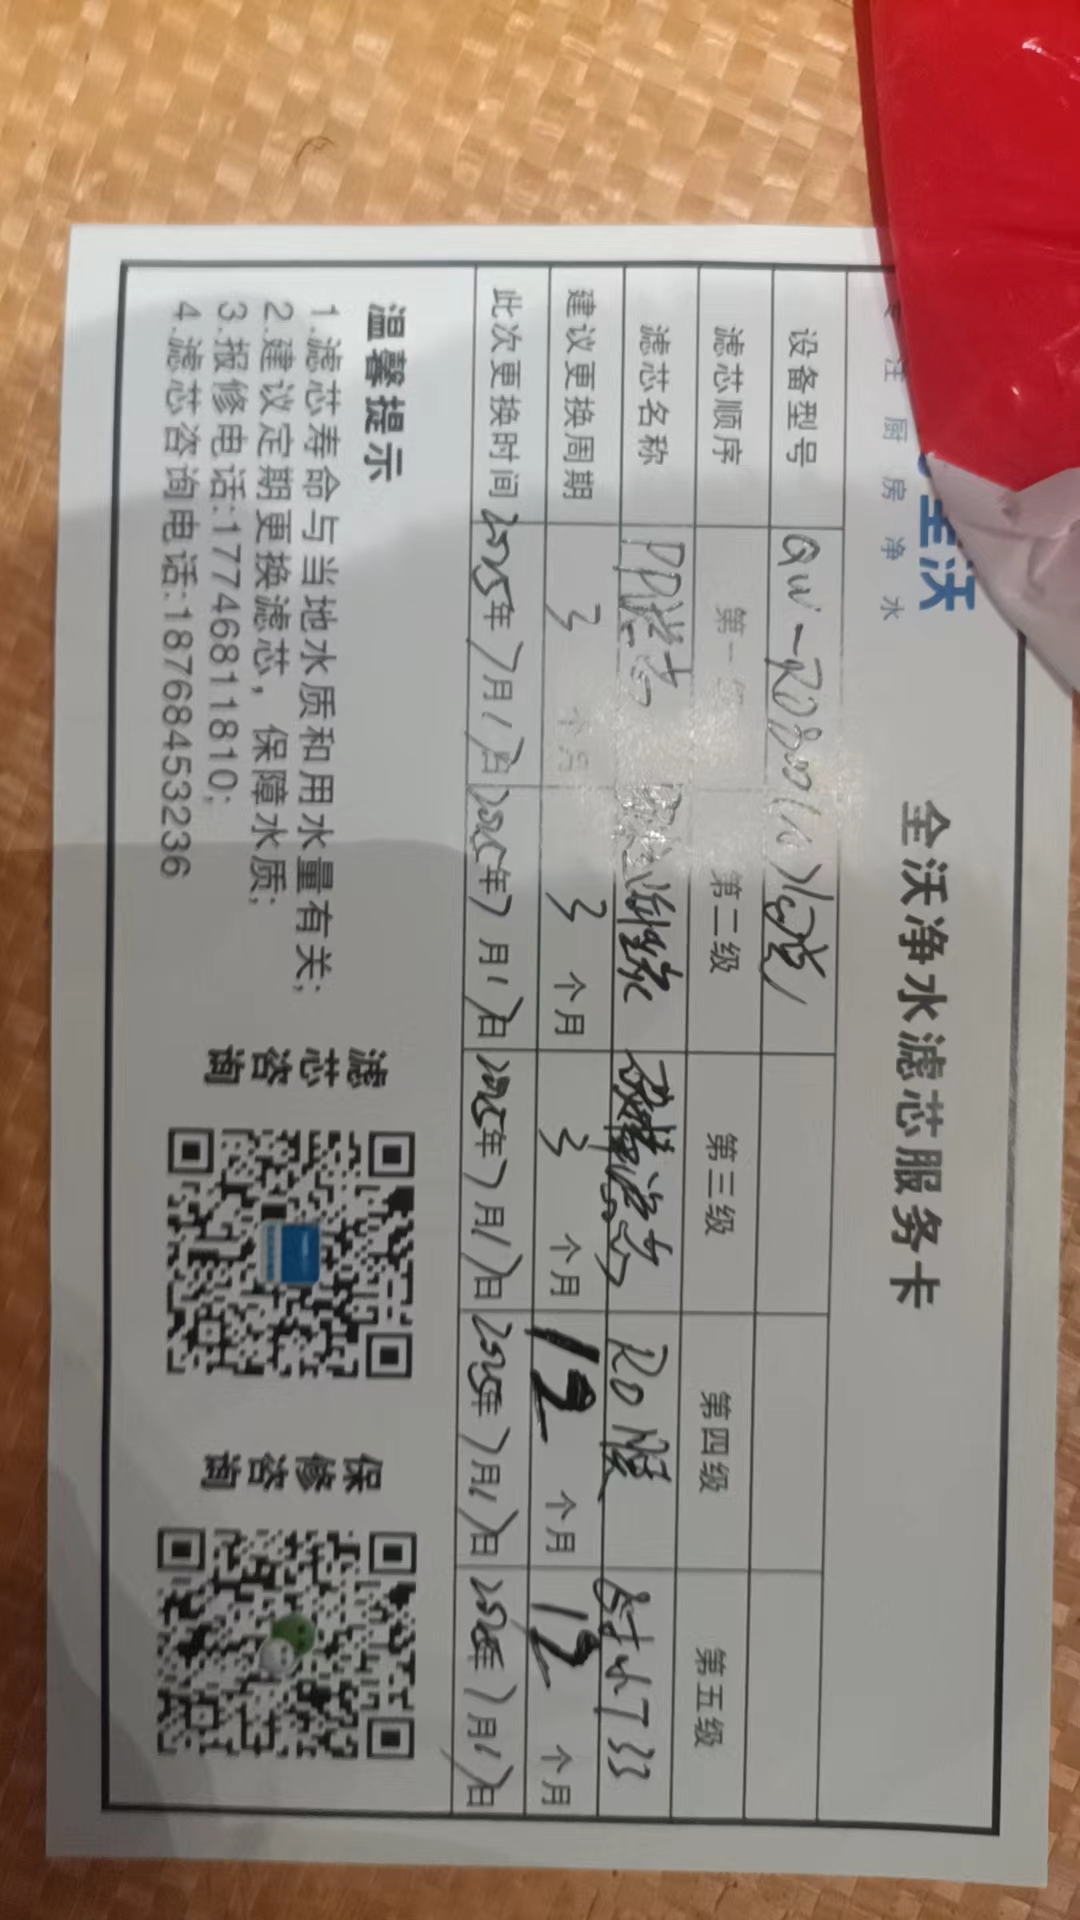 全沃
注厨房净水
全沃净水滤芯服务卡
设备型号 QW-RO800
滤芯顺序 第一级 第二级 第三级 第四级 第五级
滤芯名称 RO膜 T33
建议更换周期 3个月 3个月 3个月 12个月 12个月
此次更换时间 2025年7月17日 2025年7月17日 2025年7月17日 2025年7月17日 2025年7月17日
温馨提示
1.滤芯寿命与当地水质和用水量有关;
2.建议定期更换滤芯，保障水质;
3.报修电话:17746811810;
4.滤芯咨询电话:18768453236
滤芯咨询
保修咨询